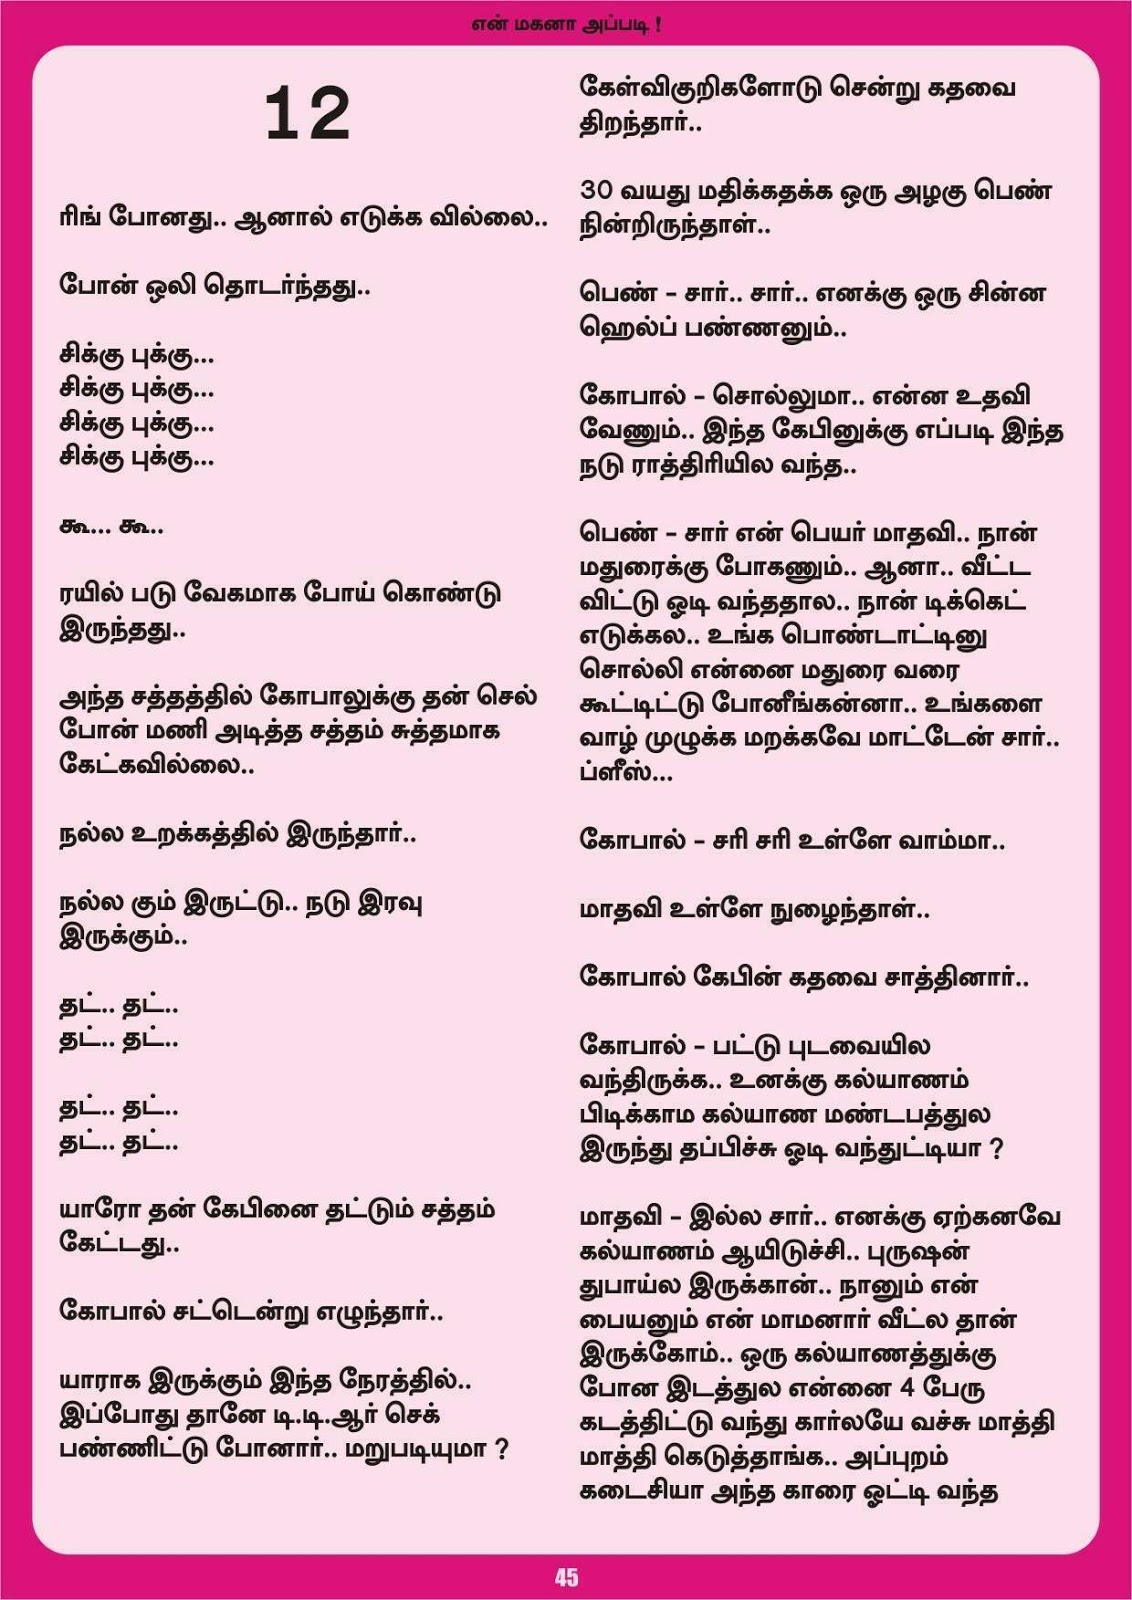 என் மகனா அப்படி !
12
ரிங் போனது.. ஆனால் எடுக்க வில்லை..
போன் ஒலி தொடர்ந்தது..
சிக்கு புக்கு...
சிக்கு புக்கு...
சிக்கு புக்கு...
சிக்கு புக்கு...
கூ... கூ..
ரயில் படு வேகமாக போய் கொண்டு
இருந்தது..
அந்த சத்தத்தில் கோபாலுக்கு தன் செல்
போன் மணி அடித்த சத்தம் சுத்தமாக
கேட்கவில்லை..
நல்ல உறக்கத்தில் இருந்தார்..
நல்ல கும் இருட்டு.. நடு இரவு
இருக்கும்..
தட்.. தட்..
தட்.. தட்..
தட்.. தட்..
தட்.. தட்..
யாரோ தன் கேபினை தட்டும் சத்தம்
கேட்டது..
கோபால் சட்டென்று எழுந்தார்..
யாராக இருக்கும் இந்த நேரத்தில்..
இப்போது தானே டி.டி.ஆர் செக்
பண்ணிட்டு போனார்.. மறுபடியுமா ?
கேள்விகுறிகளோடு சென்று கதவை
திறந்தார்..
30 வயது மதிக்கதக்க ஒரு அழகு பெண்
நின்றிருந்தாள்..
பெண் - சார்.. சார்.. எனக்கு ஒரு சின்ன
ஹெல்ப் பண்ணனும்..
கோபால் - சொல்லுமா.. என்ன உதவி
வேணும்.. இந்த கேபினுக்கு எப்படி இந்த
நடு ராத்திரியில வந்த..
பெண் - சார் என் பெயர் மாதவி.. நான்
மதுரைக்கு போகணும்.. ஆனா.. வீட்ட
விட்டு ஓடி வந்ததால.. நான் டிக்கெட்
எடுக்கல.. உங்க பொண்டாட்டினு
சொல்லி என்னை மதுரை வரை
கூட்டிட்டு போனீங்கன்னா.. உங்களை
வாழ் முழுக்க மறக்கவே மாட்டேன் சார்..
ப்ளீஸ்...
கோபால் - சரி சரி உள்ளே வாம்மா..
மாதவி உள்ளே நுழைந்தாள்..
கோபால் கேபின் கதவை சாத்தினார்..
கோபால் - பட்டு புடவையில
வந்திருக்க.. உனக்கு கல்யாணம்
பிடிக்காம கல்யாண மண்டபத்துல
இருந்து தப்பிச்சு ஓடி வந்துட்டியா ?
மாதவி - இல்ல சார்.. எனக்கு ஏற்கனவே
கல்யாணம் ஆயிடுச்சி.. புருஷன்
துபாய்ல இருக்கான்.. நானும் என்
பையனும் என் மாமனார் வீட்ல தான்
இருக்கோம்.. ஒரு கல்யாணத்துக்கு
போன இடத்துல என்னை 4 பேரு
கடத்திட்டு வந்து கார்லயே வச்சு மாத்தி
மாத்தி கெடுத்தாங்க.. அப்புறம்
கடைசியா அந்த காரை ஓட்டி வந்த
45